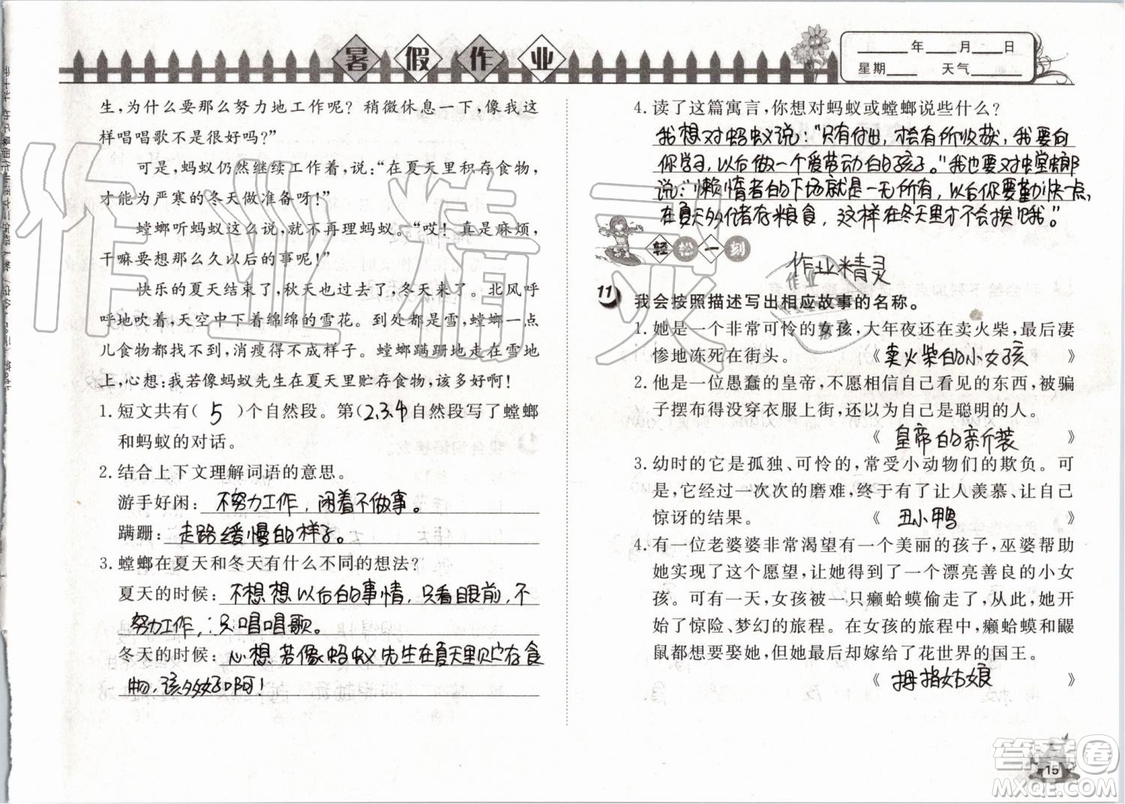 暑假作业
____年____月____日
星期____ 天气____
生，为什么要那么努力地工作呢？稍微休息一下，像我这
样唱唱歌不是很好吗？”
可是，蚂蚁仍然继续工作着，说：“在夏天里积存食物，
才能为严寒的冬天做准备呀！”
螳螂听蚂蚁这么说，就不再理蚂蚁。“哎！真是麻烦，
干嘛要想那么久以后的事呢！”
快乐的夏天结束，秋天也过去，冬天来了。北风呼
呼地吹着，天空中下着绵绵的雪花。到处都是雪，螳螂一点
儿食物都找不到，消瘦得不成样子。螳螂蹒跚地走在雪地
上，心想：我若像蚂蚁先生在夏天里贮存食物，该多好啊！
1. 短文共有（ 5 ）个自然段。第（2.3.4）自然段写了螳螂
和蚂蚁的对话。
2. 结合上下文理解词语的意思。
游手好闲：不努力工作，闲着不做事。
蹒跚：走路缓慢的样子。
3. 螳螂在夏天和冬天有什么不同的想法？
夏天的时候：不想想以后的事情，只看眼前，不
努力工作，只唱唱歌。
冬天的时候：心想若像蚂蚁先生在夏天里贮存食
物，该多好啊！
4. 读了这篇寓言，你想对蚂蚁或螳螂说些什么？
我想对蚂蚁说：“只有付出，才会有所收获，我要向
你学习，以后做一个爱劳动的孩子。”我也要对螳螂
说：“懒惰者的下场就是一无所有，以后你要勤快点，
在夏天多储存粮食，这样在冬天里才不会挨饿。”
轻松一刻
作业精灵
11 我会按照描述写出相应故事的名称。
1. 她是一个非常可怜的女孩，大年夜还在卖火柴，最后凄
惨地冻死在街头。《 卖火柴的小女孩 》
2. 他是一位愚蠢的皇帝，不愿相信自己看见的东西，被骗
子摆布得没穿衣服上街，还以为自己是聪明的人。
《 皇帝的新装 》
3. 幼时的它是孤独、可怜的，常受小动物们的欺负。可
是，它经过一次次的磨难，终于有了让人羡慕、让自己
惊讶的结果。《 丑小鸭 》
4. 有一位老婆婆非常渴望有一个美丽的孩子，巫婆帮助
她实现了这个愿望，让她得到了一个漂亮善良的小女
孩。可是有一天，女孩被一只癞蛤蟆偷走了，从此，她开
始了惊险、梦幻的旅程。在女孩的旅程中，癞蛤蟆和鼹
鼠都想要娶她，但她最后却嫁给了花世界的国王。
《 拇指姑娘 》
15
作业精灵
答案圈
MXQE.COM